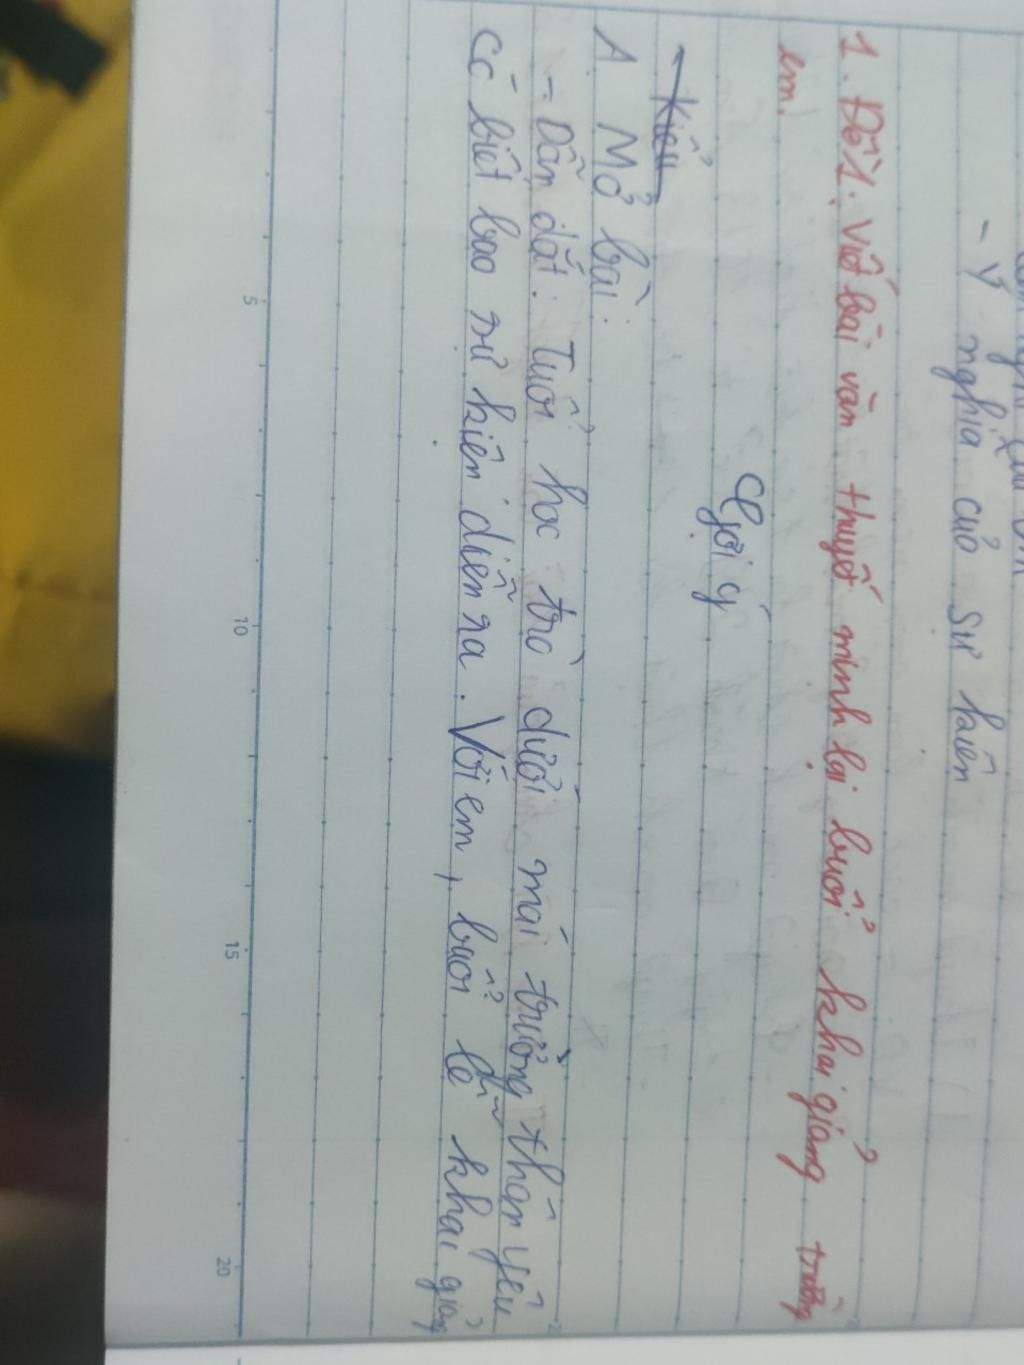 - Ý nghĩa của sự kiện
1. Đề 1: Viết bài văn thuyết minh lại buổi khai giảng trường
em.
Gợi ý
- Kiểu
A Mở bài:
- Dẫn dắt: Tuổi học trò dưới mái trường thân yêu
có biết bao sự kiện diễn ra. Với em, buổi lễ khai giảng
5
10
15
20